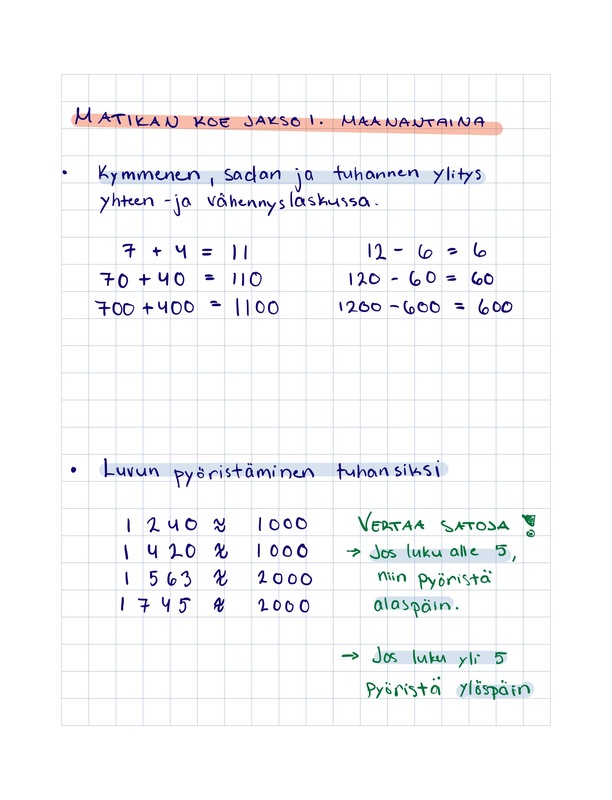 MATIKAN KOE JAKSO 1. MAANANTAINA
• Kymmenen, sadan ja tuhannen ylitys
yhteen -ja vähennyslaskussa.
7 + 4 = 11
70 + 40 = 110
700 + 400 = 1100
12 - 6 = 6
120 - 60 = 60
1200 - 600 = 600
• Luvun pyöristäminen tuhansiksi
1 240 ≈ 1000
1 420 ≈ 1000
1 563 ≈ 2000
1 745 ≈ 2000
VERTAA SATOJA !
→ Jos luku alle 5,
niin pyöristä
alaspäin.
→ Jos luku yli 5
pyöristä ylöspäin